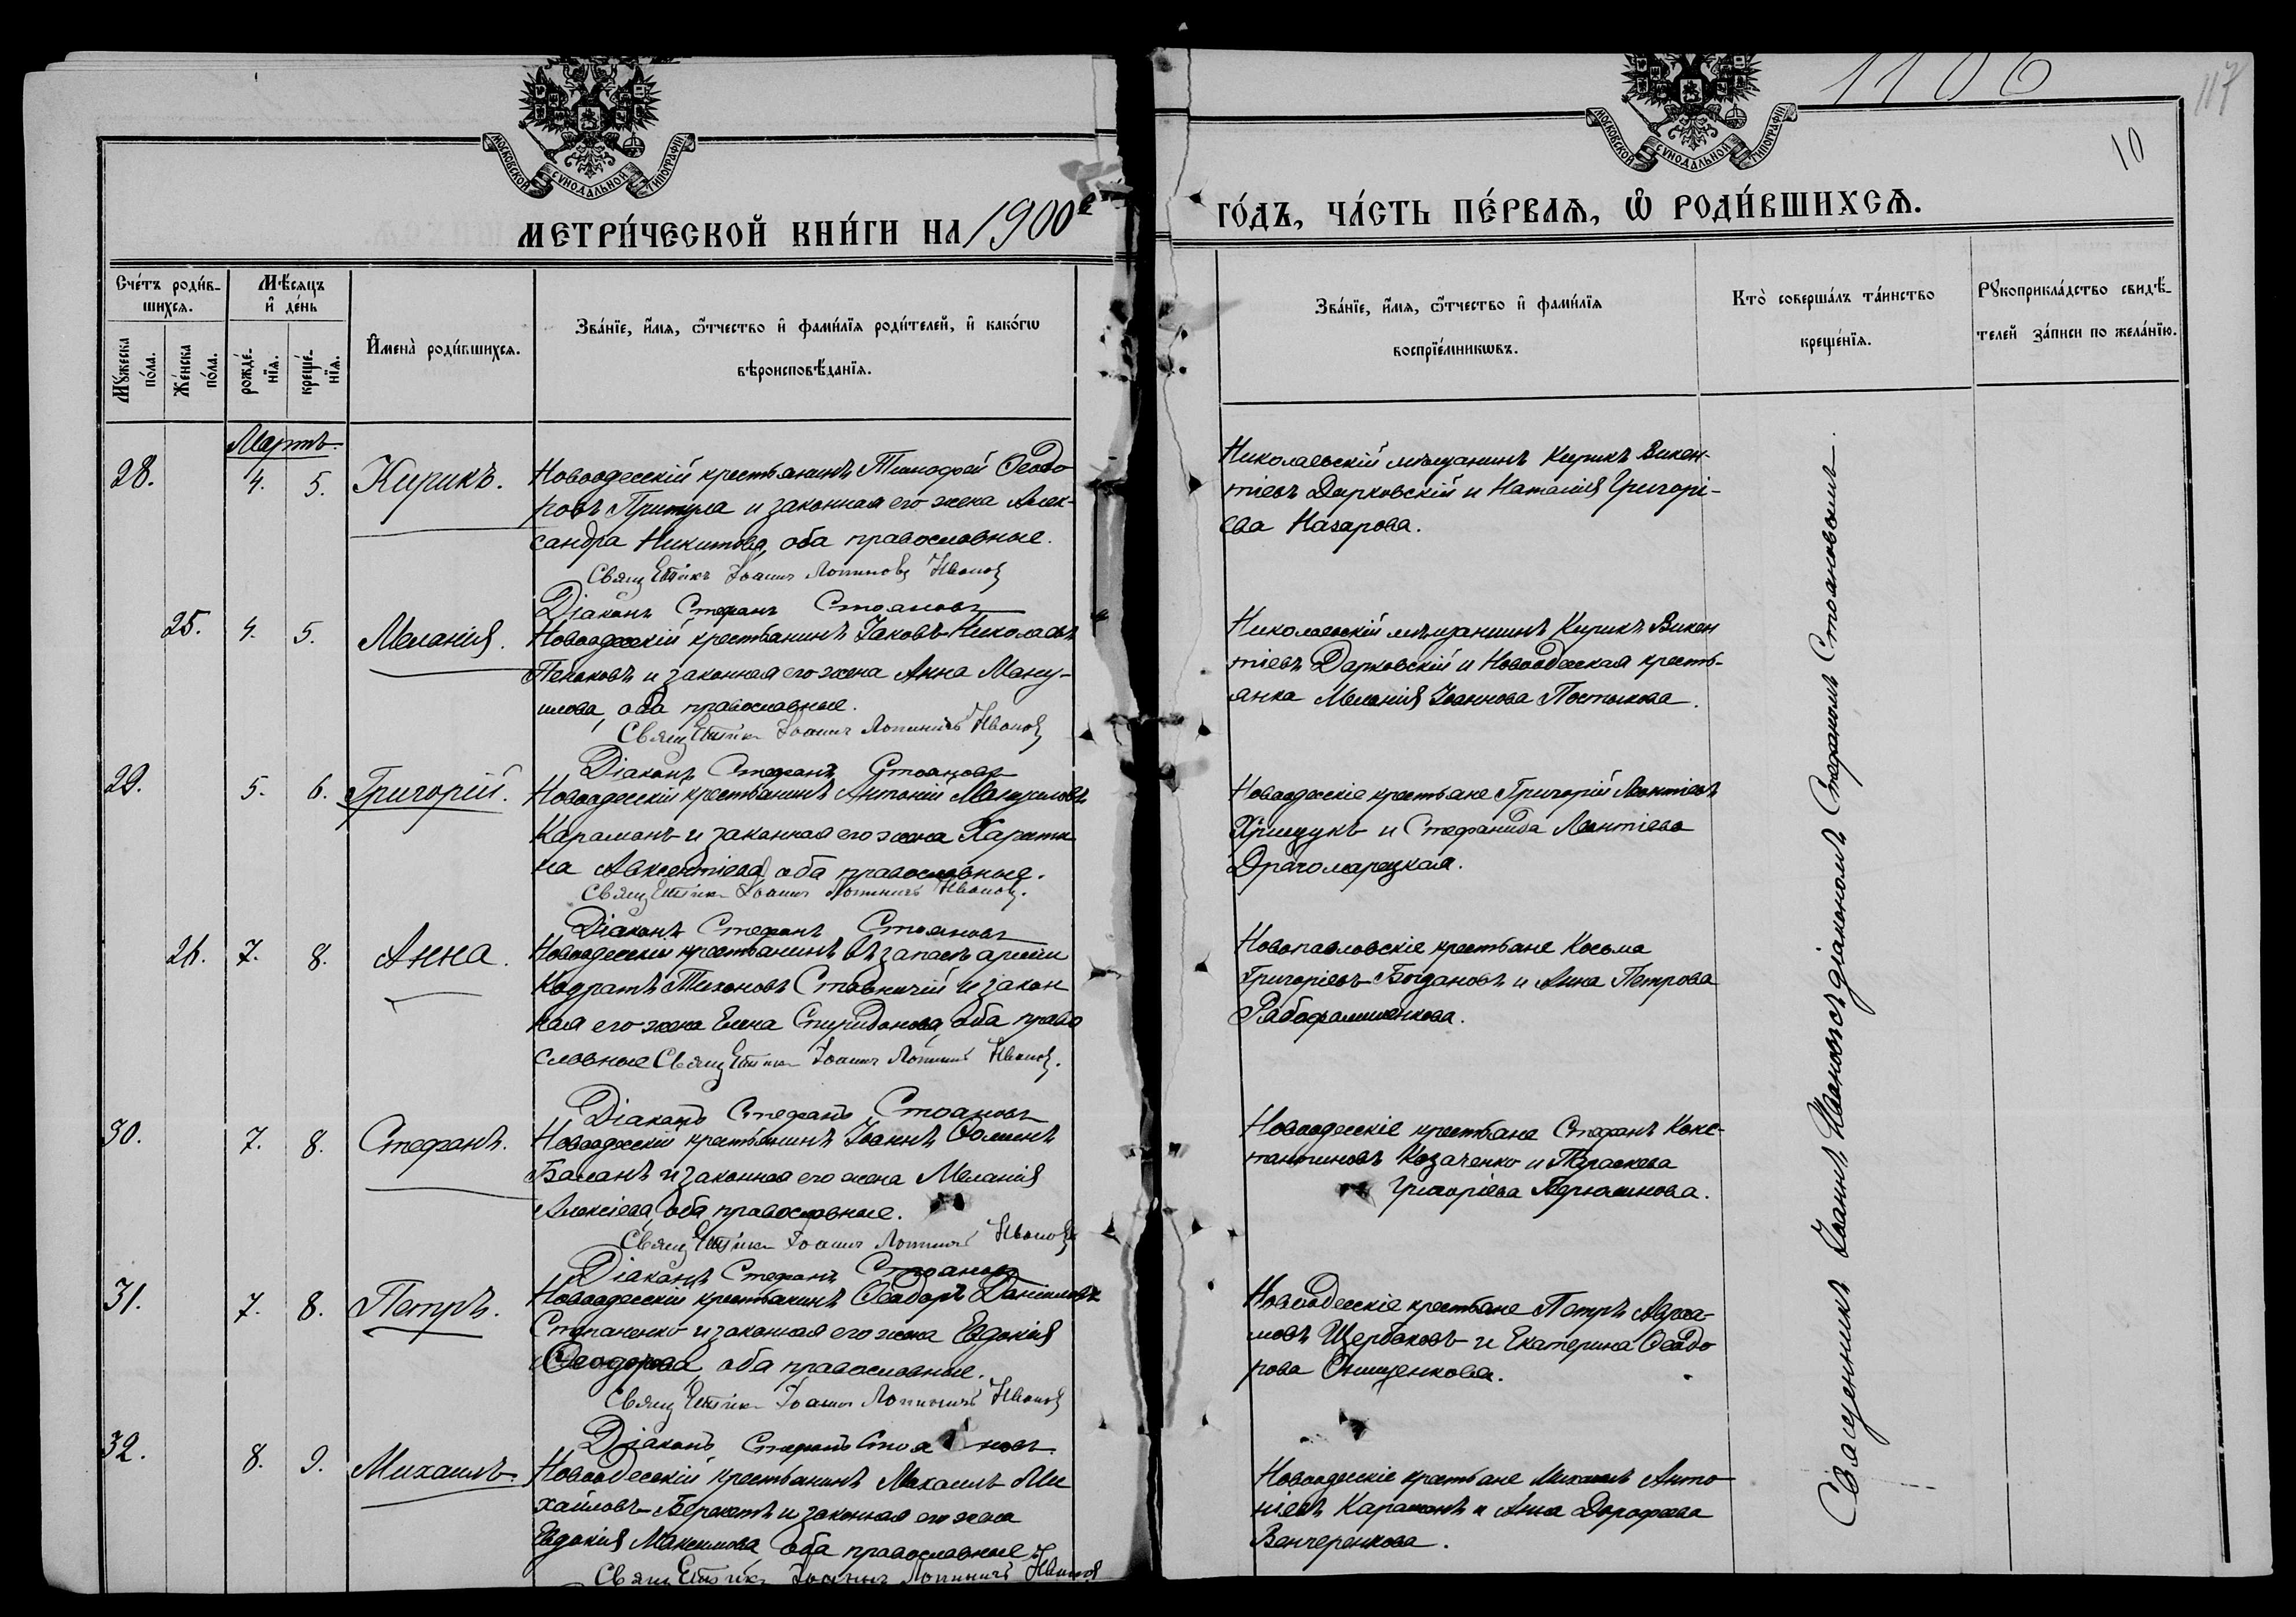 1106
117
10
МОСКОВСКОЙ СѴНОДАЛЬНОЙ ТИПОГРАФІИ
МОСКОВСКОЙ СѴНОДАЛЬНОЙ ТИПОГРАФІИ
МЕТРИ́ЧЕСКОЙ КНИ́ГИ НА 1900й
ГО́ДЪ, ЧА́СТЬ ПЕ́РВАѦ, Ѡ РОДИ́ВШИХСѦ.
Сче́тъ роди́в-
шихсѧ.
Мꙋ́жеска по́ла.
Же́нска по́ла.
Мѣ́сѧцъ и҆ де́нь
рожде́-
нїѧ.
креще́-
нїѧ.
И҆мена̀ роди́вшихсѧ.
Зва́нїе, и҆́мѧ, ѻ҆́тчество и҆ фами́лїѧ роди́телей, и҆ како́гѡ
вѣроисповѣ́данїѧ.
Зва́нїе, и҆́мѧ, ѻ҆́тчество и҆ фами́лїѧ
воспрїе́мникѡвъ.
Кто̀ соверша́лъ та́инство
креще́нїѧ.
Рꙋкоприкла́дство свидѣ́-
телей за́писи по жела́нїю.
Мартъ.
28. 4. 5. Кирикъ.
Новоодесскій крестьянинъ Тимофей Ѳеодо
ровъ Притула и законная его жена Алек-
сандра Никитова, оба православные.
Священникъ Іоаннъ Ивановъ
Діаконъ Стефанъ Стояновъ
Николаевскій мѣщанинъ Кирикъ Викен-
тіевъ Дарковскій и Наталія Григорі-
ева Назарова.
25. 4. 5. Меланія.
Новоодесскій крестьянинъ Іаковъ Николаевъ
и законная его жена Анна Ману-
илова, оба православные.
Священникъ Іоаннъ Ивановъ
Діаконъ Стефанъ Стояновъ
Николаевскій мѣщанинъ Кирикъ Викен
тіевъ Дарковскій и Новоодесская кресть-
янка Меланія Іоаннова
29. 5. 6. Григорій.
Новоодесскій крестьянинъ Антоній Мануиловъ
Караманъ и законная его жена Харити
на Авксентіева, оба православные.
Священникъ Іоаннъ Ивановъ.
Діаконъ Стефанъ Стояновъ
Новоодесскіе крестьяне Григорій Леонтіевъ
и Стефанида Леонтіева
Драгомарецкая.
26. 7. 8. Анна.
Новоодесскій крестьянинъ въ запасѣ арміи
Кодратъ Тихоновъ Ставничій и закон
ная его жена Елена Спиридонова, оба право
славные Священникъ Іоаннъ Ивановъ.
Діаконъ Стефанъ Стояновъ
Новопавловскіе крестьяне Косьма
Григоріевъ Богдановъ и Анна Петрова
30. 7. 8. Стефанъ.
Новоодесскій крестьянинъ Іоаннъ
Баланъ и законная его жена Меланія
Алексіева, оба православные.
Священникъ Іоаннъ Ивановъ
Діаконъ Стефанъ Стояновъ
Новоодесскіе крестьяне Стефанъ Конс-
тантиновъ Козаченко и Параскева
Григоріева
31. 7. 8. Петръ.
Новоодесскій крестьянинъ Ѳеодоръ Даніиловъ
Степаненко и законная его жена Евдокія
Ѳеодорова, оба православные.
Священникъ Іоаннъ Ивановъ
Діаконъ Стефанъ Стояновъ
Новоодесскіе крестьяне Петръ Авраа-
мовъ Щербаковъ и Екатерина Ѳеодо
рова Онищенкова.
32. 8. 9. Михаилъ.
Новоодесскій крестьянинъ Михаилъ Ми
хайловъ и законная его жена
Евдокія Максимова, оба православные.
Священникъ Іоаннъ Ивановъ
Новоодесскіе крестьяне Михаилъ Анто
ніевъ Караманъ и Анна Дорофеева
Венгеренкова.
Священникъ Іоаннъ Ивановъ съ діакономъ Стефаномъ Стояновымъ.